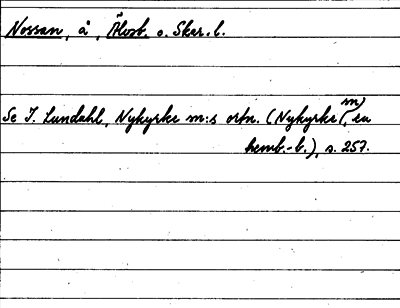 Nossan, å, Älvsb. o. Skar. l.
Se I. Lundahl, Nykyrke m:s ortn. (Nykyrke (m), en
hemb.-b.), s. 257.